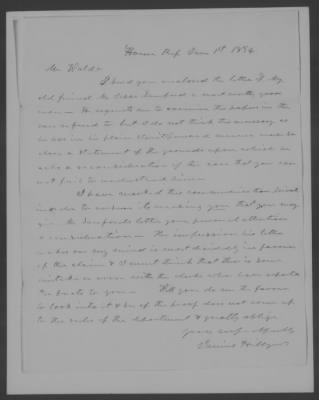 House Rep June 1st 1854
Mr Waldo
I send you enclosed the letter of my
old friend Mr a most worthy good
man — He requests me to examine the papers in the
case referred to but I do not think it necessary as
he has in his plain straitforward manner made
clear a statement of the grounds upon which he
asks a reconsideration of the case that you can
not fail to understand him —
I have marked this communication private
in order to its reaching you that you may
give Mr letter your personal attention
& consideration — The impression his letter
makes on my mind is most decidedly in favour
of the claim & I must think that there is some
mistake or error with the clerks who have reported
to you — Will you do me the favour
to look into it & see if the proof does not come up
to the rules of the department & greatly oblige
Yours very respectfully
Junius Hillyer